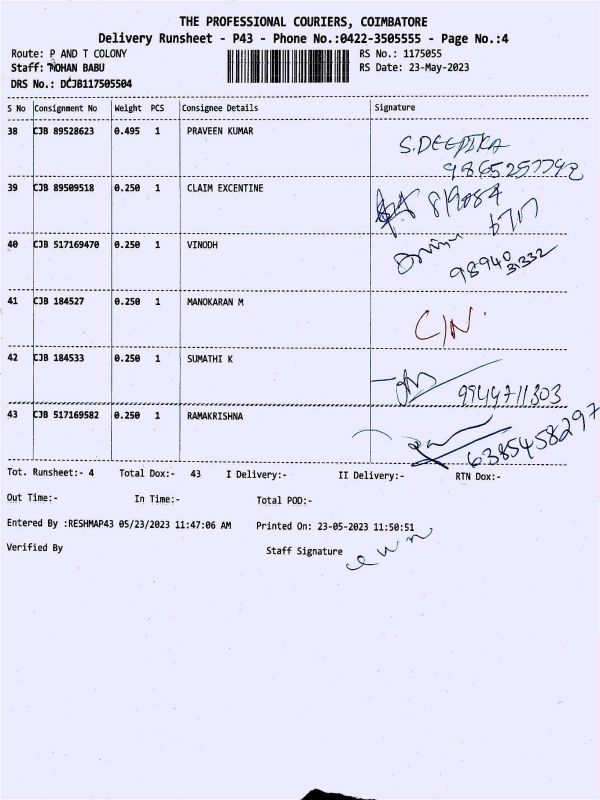 THE PROFESSIONAL COURIERS, COIMBATORE
Delivery Runsheet - P43 - Phone No.:0422-3505555 - Page No.:4
Route: P AND T COLONY RS No.: 1175055
Staff: ROHAN BABU RS Date: 23-May-2023
DRS No.: DCJB117505504
S No Consignment No Weight PCS Consignee Details Signature
38 CJB 89528623 0.495 1 PRAVEEN KUMAR S.DEEPIKA
9865257792
39 CJB 89509518 0.250 1 CLAIM EXCENTINE 819084
6717
40 CJB 517169470 0.250 1 VINODH
98940
31332
41 CJB 184527 0.250 1 MANOKARAN M C/N.
42 CJB 184533 0.250 1 SUMATHI K
9944711303
43 CJB 517169582 0.250 1 RAMAKRISHNA
6385458297
Tot. Runsheet:- 4 Total Dox:- 43 I Delivery:- II Delivery:- RTN Dox:-
Out Time:- In Time:- Total POD:-
Entered By :RESHMAP43 05/23/2023 11:47:06 AM Printed On: 23-05-2023 11:50:51
Verified By Staff Signature